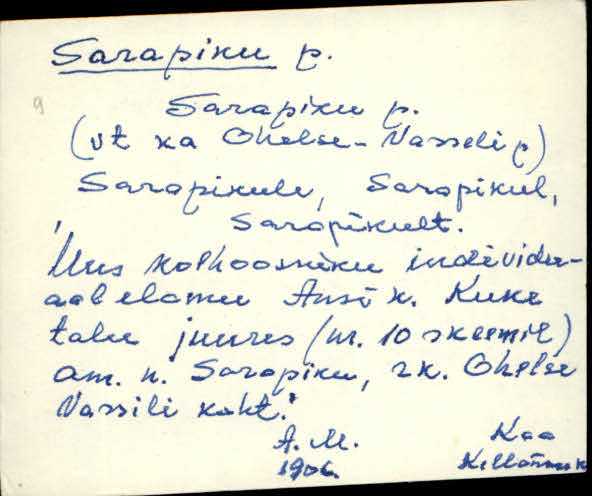 Sarapiku p.
9
Sarapiku p.
(vt ka Ohelse-Vasseli p)
Sarapikule, Sarapikul,
Sarapikult.
"Uus kolhoosniku individu-
aalelamu Ansi k. Kuke
talu juures (nr. 10 skeemil)
am. n. Sarapiku, rk. Ohelse
Vassili koht."
A. M.
1906.
Kaa